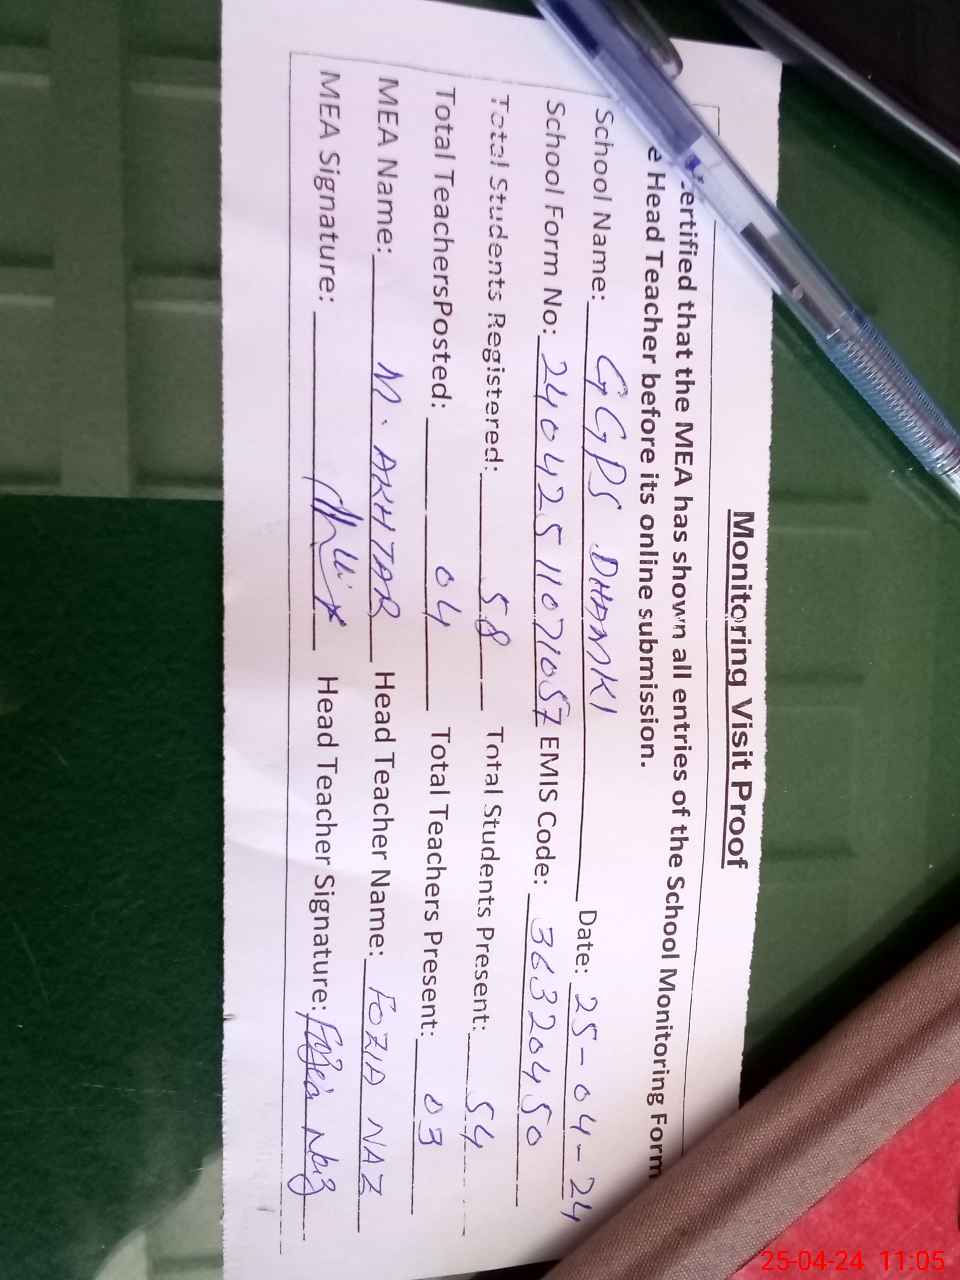 Monitoring Visit Proof
ertified that the MEA has shown all entries of the School Monitoring Form
e Head Teacher before its online submission.
School Name: GGPS DHAMKI Date: 25-04-24
School Form No: 24042511071057 EMIS Code: 36320450
Total Students Registered: 58 Total Students Present: 54
Total TeachersPosted: 04 Total Teachers Present: 03
MEA Name: M. AKHTAR Head Teacher Name: FOZIA NAZ
MEA Signature: Head Teacher Signature: Fozia Naz
25-04-24 11:05